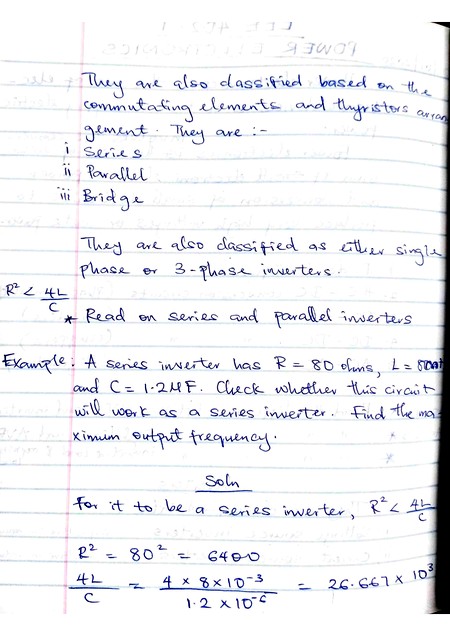 They are also classified based on the
commutating elements and thyristors arran
gement. They are :-
i Series
ii Parallel
iii Bridge
They are also classified as either single
phase or 3-phase inverters.
R² < 4L/C
* Read on series and parallel inverters
Example: A series inverter has R = 80 ohms, L =
and C = 1.2μF. Check whether this circuit
will work as a series inverter. Find the ma
ximum output frequency.
Soln
For it to be a series inverter, R² < 4L/C
R² = 80² = 6400
4L/C = 4 × 8×10⁻³ / 1.2 × 10⁻⁶ = 26.667 × 10³